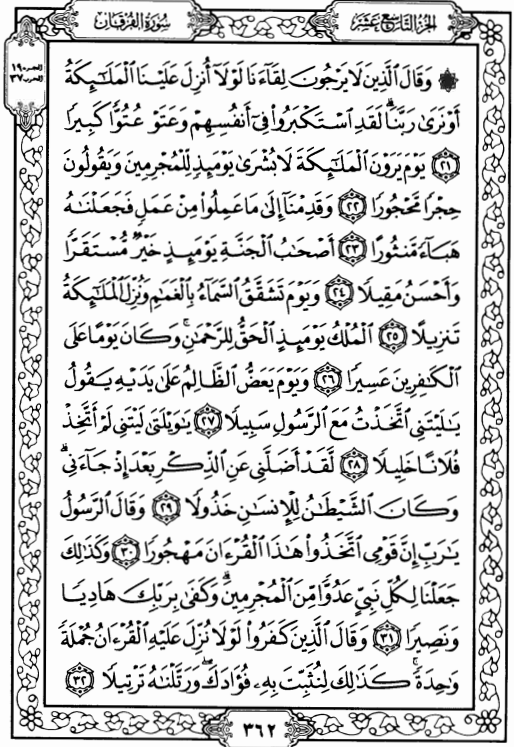 الجزء التاسع عشر
سورة الفرقان
الجزء ١٩
الحزب ٣٧
۞ وَقَالَ ٱلَّذِينَ لَا يَرْجُونَ لِقَآءَنَا لَوْلَآ أُنزِلَ عَلَيْنَا ٱلْمَلَـٰٓئِكَةُ
أَوْ نَرَىٰ رَبَّنَا ۗ لَقَدِ ٱسْتَكْبَرُوا۟ فِىٓ أَنفُسِهِمْ وَعَتَوْ عُتُوًّا كَبِيرًا
٢١ يَوْمَ يَرَوْنَ ٱلْمَلَـٰٓئِكَةَ لَا بُشْرَىٰ يَوْمَئِذٍ لِّلْمُجْرِمِينَ وَيَقُولُونَ
حِجْرًا مَّحْجُورًا ٢٢ وَقَدِمْنَآ إِلَىٰ مَا عَمِلُوا۟ مِنْ عَمَلٍ فَجَعَلْنَـٰهُ
هَبَآءً مَّنثُورًا ٢٣ أَصْحَـٰبُ ٱلْجَنَّةِ يَوْمَئِذٍ خَيْرٌ مُّسْتَقَرًّا
وَأَحْسَنُ مَقِيلًا ٢٤ وَيَوْمَ تَشَقَّقُ ٱلسَّمَآءُ بِٱلْغَمَـٰمِ وَنُزِّلَ ٱلْمَلَـٰٓئِكَةُ
تَنزِيلًا ٢٥ ٱلْمُلْكُ يَوْمَئِذٍ ٱلْحَقُّ لِلرَّحْمَـٰنِ ۚ وَكَانَ يَوْمًا عَلَى
ٱلْكَـٰفِرِينَ عَسِيرًا ٢٦ وَيَوْمَ يَعَضُّ ٱلظَّالِمُ عَلَىٰ يَدَيْهِ يَقُولُ
يَـٰلَيْتَنِى ٱتَّخَذْتُ مَعَ ٱلرَّسُولِ سَبِيلًا ٢٧ يَـٰوَيْلَتَىٰ لَيْتَنِى لَمْ أَتَّخِذْ
فُلَانًا خَلِيلًا ٢٨ لَّقَدْ أَضَلَّنِى عَنِ ٱلذِّكْرِ بَعْدَ إِذْ جَآءَنِى ۗ
وَكَانَ ٱلشَّيْطَـٰنُ لِلْإِنسَـٰنِ خَذُولًا ٢٩ وَقَالَ ٱلرَّسُولُ
يَـٰرَبِّ إِنَّ قَوْمِى ٱتَّخَذُوا۟ هَـٰذَا ٱلْقُرْءَانَ مَهْجُورًا ٣٠ وَكَذَٰلِكَ
جَعَلْنَا لِكُلِّ نَبِىٍّ عَدُوًّا مِّنَ ٱلْمُجْرِمِينَ ۗ وَكَفَىٰ بِرَبِّكَ هَادِيًا
وَنَصِيرًا ٣١ وَقَالَ ٱلَّذِينَ كَفَرُوا۟ لَوْلَا نُزِّلَ عَلَيْهِ ٱلْقُرْءَانُ جُمْلَةً
وَٰحِدَةً ۚ كَذَٰلِكَ لِنُثَبِّتَ بِهِۦ فُؤَادَكَ ۖ وَرَتَّلْنَـٰهُ تَرْتِيلًا ٣٢
٣٦٢